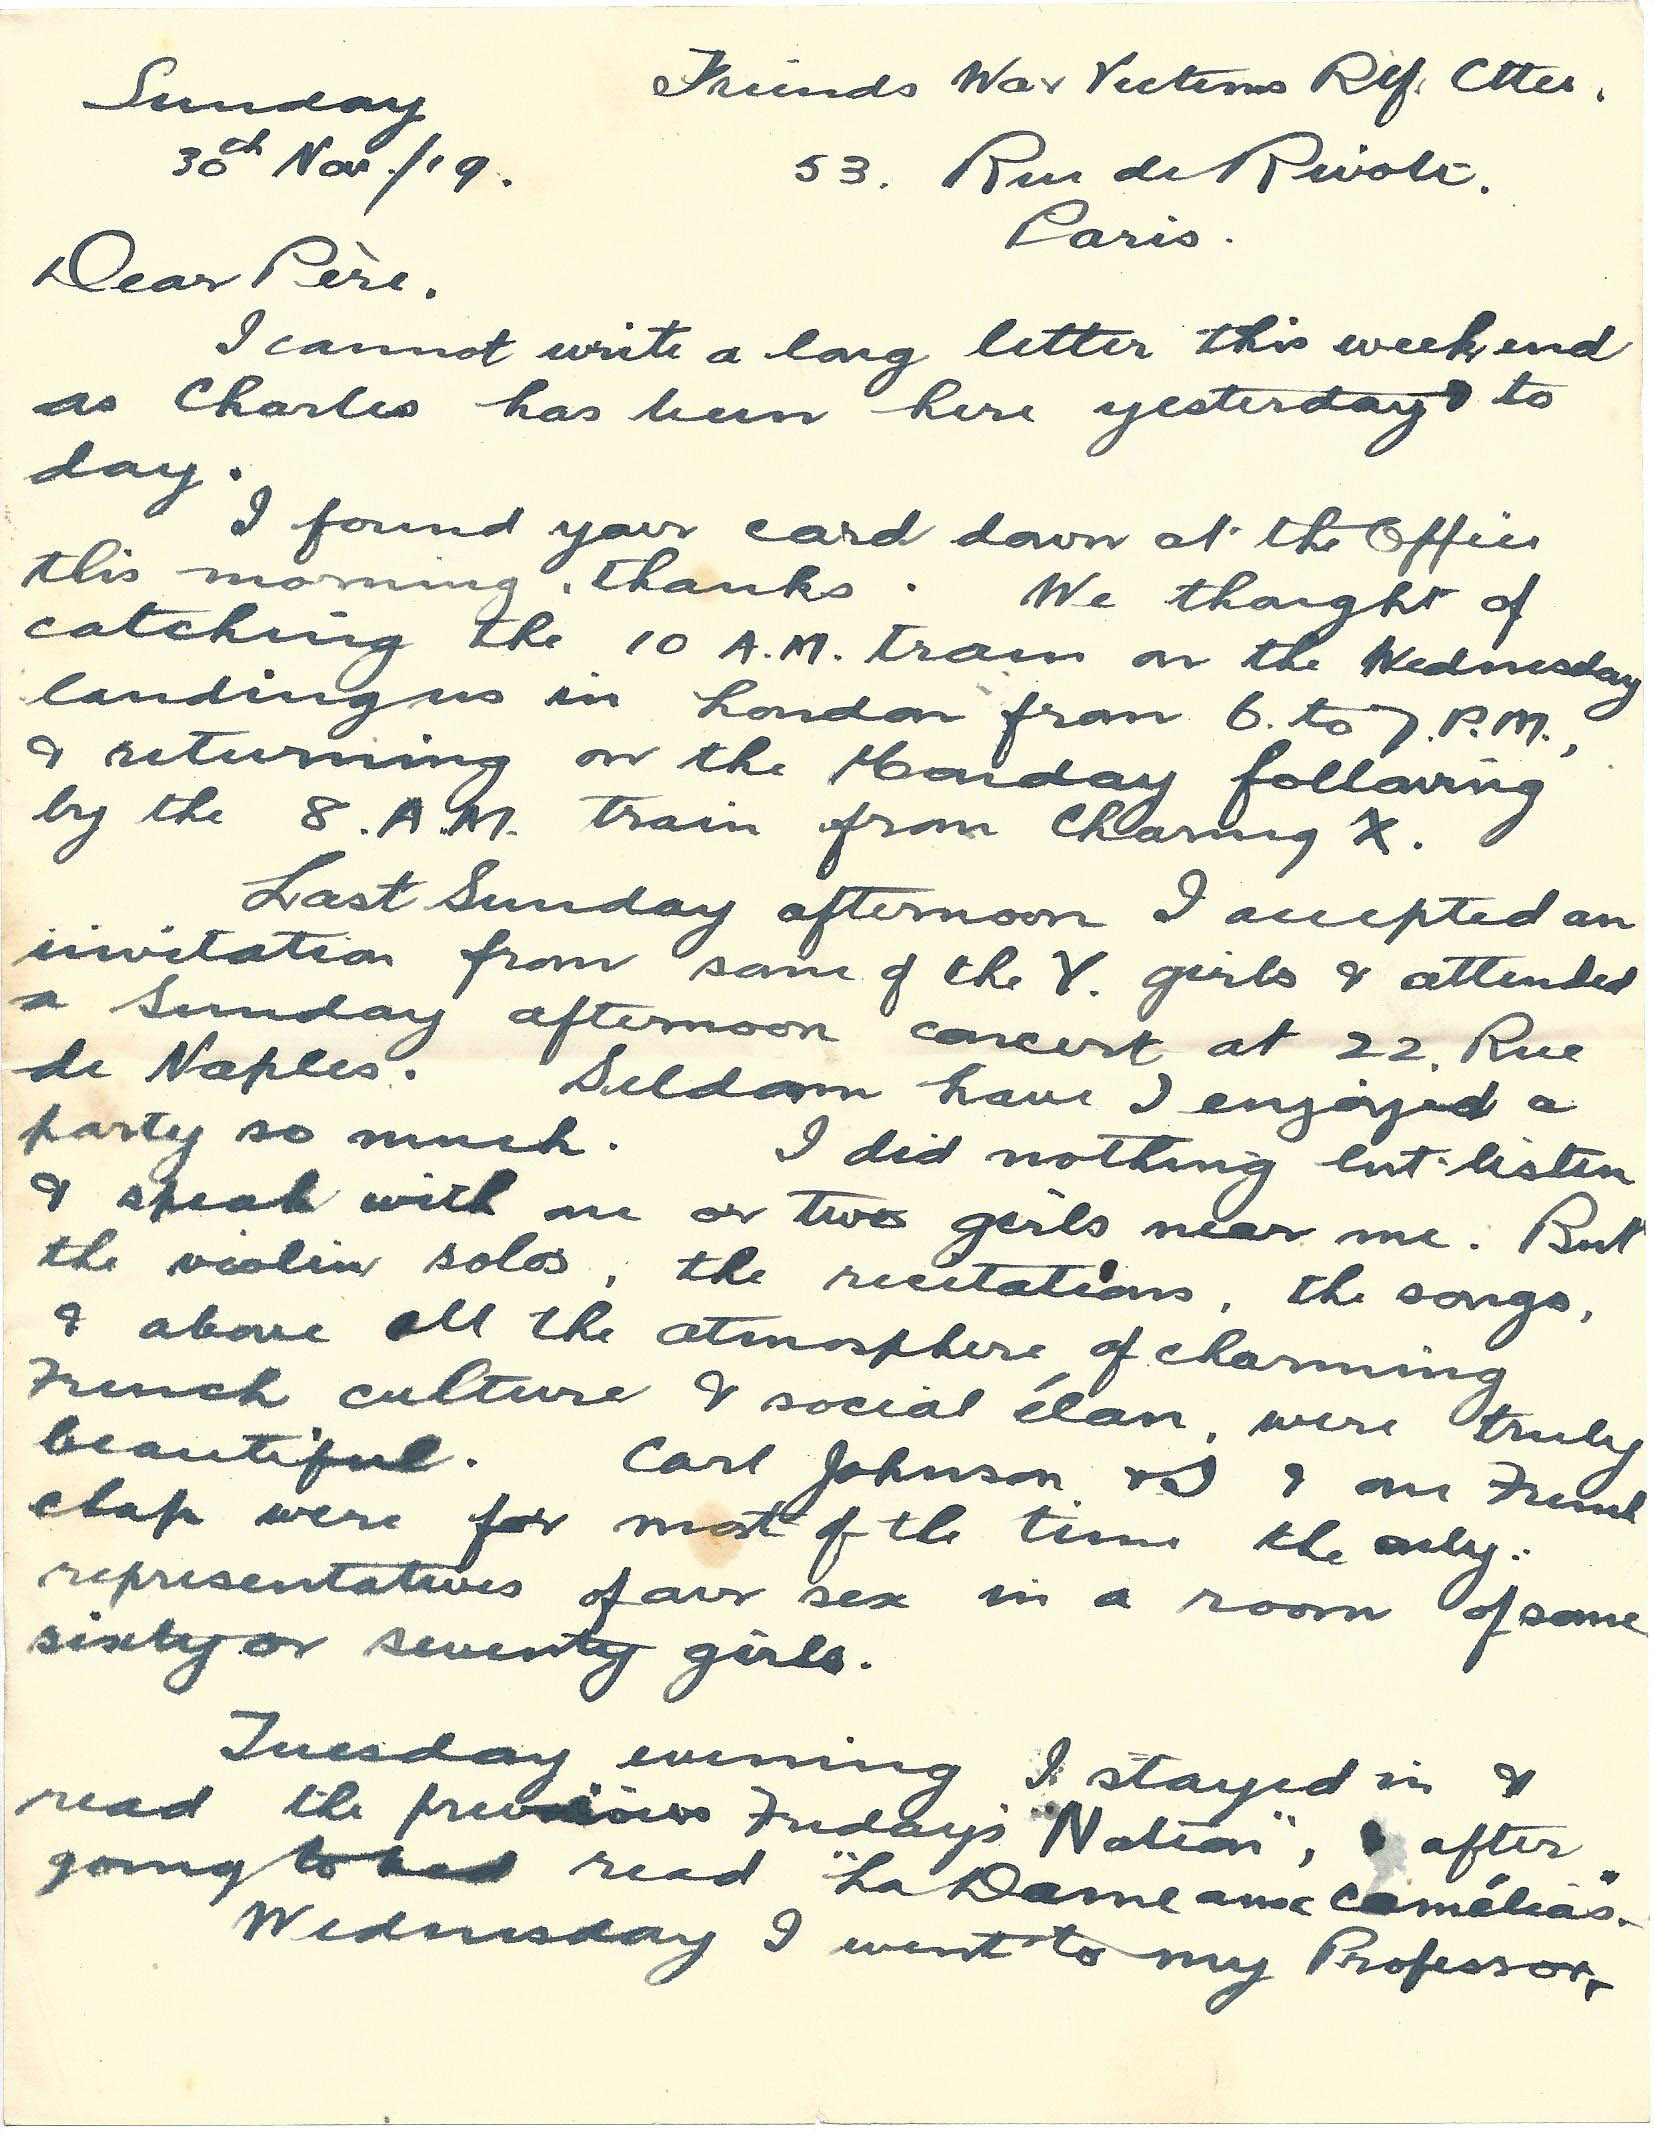 Sunday
30th Nov./19.
Friends War Victims Rlf. Cttee.
53. Rue de Rivoli.
Paris.
Dear Père.
I cannot write a long letter this week end
as Charles has been here yesterday & to
day.
I found your card down at the Office
this morning, thanks. We thought of
catching the 10 A.M. train on the Wednesday
landing us in London from 6. to 7. P.M.,
& returning on the Monday following
by the 8. A.M. train from Charing X.
Last Sunday afternoon I accepted an
invitation from some of the Y. girls & attended
a Sunday afternoon concert at 22, Rue
de Naples. Seldom have I enjoyed a
party so much. I did nothing but listen
& speak with one or two girls near me. But
the violin solos, the recitations, the songs,
& above all the atmosphere of charming
French culture & social élan, were truly
beautiful. Carl Johnson & I & one French
chap were for most of the time the only
representatives of our sex in a room of some
sixty or seventy girls.
Tuesday evening I stayed in &
read the previous Friday's "Nation", & after
going to bed read "La Dame aux Camélias".
Wednesday I went to my Professor,